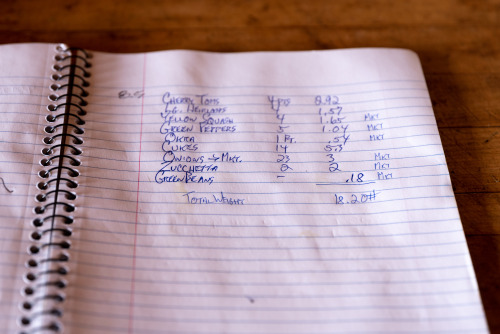 8/25 Cherry Toms 4 pts 8.92
Lg. Heirlooms 1.59
Yellow Squash 4 1.65 Mkt
Green Peppers 5 1.04 Mkt
Okra 1 Pt. .54 Mkt
Cukes 14 5.3
Onions → Mkt. 23 3 Mkt
Zucchetta 2 2 Mkt
Green Beans – .18 Mkt
Total Weight 18.20#